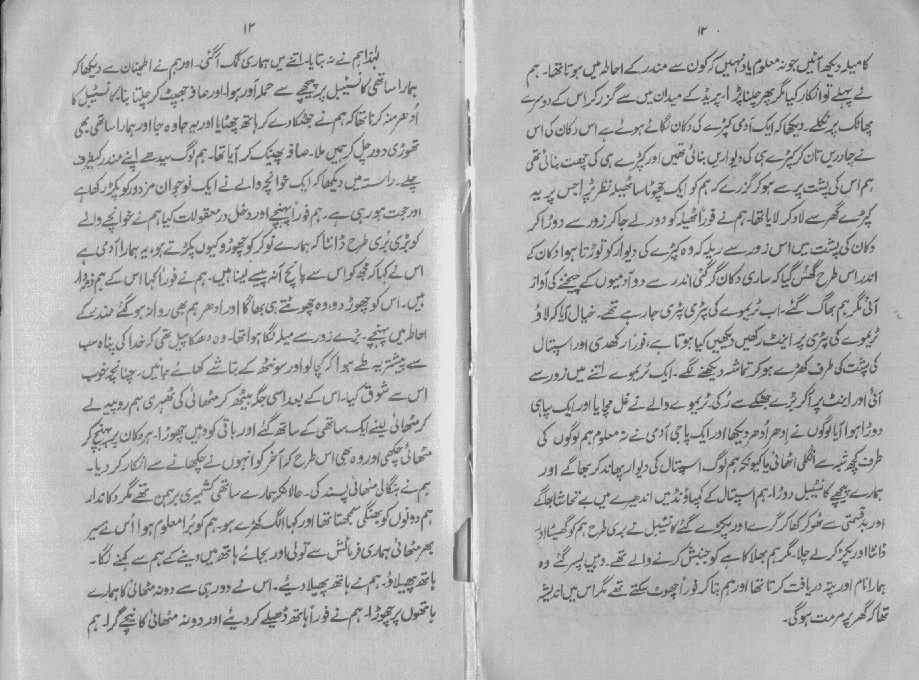 ۱۲
کا میلہ دیکھ آئیں جو نہ معلوم یاد نہیں کہ کون سے مندر کے احاطہ میں ہوتا تھا۔ ہم
نے پہلے تو انکار کیا مگر پھر چلنا پڑا۔ پریڈ کے میدان میں سے گزر کر اس کے دوسرے
پھاٹک پر نکلے۔ دیکھا کہ ایک آدمی کپڑے کی دکان لگائے ہوئے ہے اس دکان کی اس
نے چادریں تان کر کپڑے ہی کی دیواریں بنائی تھیں اور کپڑے ہی کی چھت بنائی تھی
ہم اس کی پشت پر سے ہو کر گزرے کہ ہم کو ایک چھوٹا سا ٹھیلہ نظر پڑا جس پر یہ
کپڑے گھر سے لاد کر لایا تھا۔ ہم نے فوراً ٹھیلہ کو دور لے جا کر زور سے دوڑا کر
دکان کی پشت میں اس زور سے ریلہ کہ وہ کپڑے کی دیوار کو توڑتا ہوا دکان کے
اندر اس طرح گھس گیا کہ ساری دکان گر گئی اندر سے دو آدمیوں کے چیخنے کی آواز
آئی مگر ہم بھاگ گئے، اب ٹریموے کی پٹری پٹری جا رہے تھے۔ خیال آیا کہ لاؤ
ٹریموے کی پٹری پر اینٹ رکھیں دیکھیں کیا ہوتا ہے، فوراً رکھدی اور اسپتال
کی پشت کی طرف کھڑے ہو کر تماشہ دیکھنے لگے۔ ایک ٹریموے اتنے میں زور سے
آئی اور اینٹ پر آ کر بڑے جھٹکے سے رُکی۔ ٹریموے والے نے غل مچایا اور ایک سپاہی
دوڑا ہوا آیا لوگوں نے اِدھر اُدھر دیکھا اور ایک پاجی آدمی نے نہ معلوم ہم لوگوں کی
طرف کچھ شبہ سے انگلی اٹھائی یا کیونکہ ہم لوگ اسپتال کی دیوار پھاند کر بھاگے اور
ہمارے پیچھے کانسٹیبل دوڑا۔ ہم اسپتال کے کمپاؤنڈ میں اندھیرے میں بے تحاشا بھاگے
اور بدقسمتی سے ٹھوکر کھا کر گرے اور پکڑے گئے کانسٹیبل نے بری طرح ہم کو گھسیٹا اور
ڈانٹا اور پکڑ کر لے چلا۔ مگر ہم بھلا کاہے کو جنبش کرنے والے تھے۔ وہیں پسر گئے وہ
ہمارا نام اور پتہ دریافت کرتا تھا اور ہم بتا کر فوراً چھوٹ سکتے تھے مگر اس میں اندیشہ
تھا کہ گھر پر مرمت ہو گی۔
۱۳
لہٰذا ہم نے نہ بتایا۔ اتنے میں ہماری کمک آ گئی۔ اور ہم نے اطمینان سے دیکھا کہ
ہمارا ساتھی کانسٹیبل پر پیچھے سے حملہ آور ہوا، اور صافہ جھپٹ کر چلتا بنا، کانسٹیبل کا
اُدھر منہ کرنا تھا کہ ہم نے جھٹکا دے کر ہاتھ چھٹایا اور یہ جا وہ جا اور ہمارا ساتھی بھی
تھوڑی دور چل کر ہمیں ملا۔ صافہ پھینک کر آیا تھا۔ ہم لوگ سیدھے اپنے مندر کیطرف
چلے۔ راستہ میں دیکھا کہ ایک خوانچہ والے نے ایک نوجوان مزدور کو پکڑ رکھا ہے
اور حجت ہو رہی ہے۔ ہم فوراً پہنچے اور دخل در معقولات کیا ہم نے خوانچے والے
کو بڑی بُری طرح ڈانٹا کہ ہمارے نوکر کو چھوڑو کیوں پکڑتے ہو، یہ ہمارا آدمی ہے
اس نے کہا کہ مجھ کو اس سے پانچ آنہ پیسے لینا ہیں۔ ہم نے فوراً کہا اس کے ہم ذمہ دار
ہیں۔ اس کو چھوڑ دو، وہ چھوٹتے ہی بھاگا اور ادھر ہم بھی روانہ ہو گئے مندر کے
احاطہ میں پہنچے۔ بڑے زور سے میلہ لگا ہوا تھا۔ وہ دھکا پیل تھی کہ خدا کی پناہ سب
سے پیشتر یہ طے ہوا کہ کچالو اور سونٹھ کے بتاشے کھائے جائیں۔ چنانچہ خوب
اس سے شوق کیا۔ اس کے بعد اسی جگہ بیٹھ کر مٹھائی کی ٹھہری ہم روپیہ لے
کر مٹھائی لینے ایک ساتھی کے ساتھ گئے اور باقی کو وہیں چھوڑا۔ ہر دکان پر پہنچ کر
مٹھائی چکھی اور وہ بھی اس طرح کہ آخر کو انہوں نے چکھانے سے انکار کر دیا۔
ہم نے بنگالی مٹھائی پسند کی۔ حالانکہ ہمارے ساتھی کشمیری برہمن تھے مگر دکاندار
ہم دونوں کو بھنگی سمجھتا تھا اور کہا الگ کھڑے ہو۔ ہم کو بُرا معلوم ہوا، اُس نے سیر
بھر مٹھائی ہماری فرمائش سے تولی اور بجائے ہاتھ میں دینے کے ہم سے کہنے لگا۔
ہاتھ پھیلاؤ۔ ہم نے ہاتھ پھیلا دیئے۔ اس نے دور ہی سے دونہ مٹھائی کا ہمارے
ہاتھوں پر چھوڑا۔ ہم نے فوراً ہاتھ ڈھیلے کر دیئے اور دونہ مٹھائی کا نیچے گرا۔ ہم